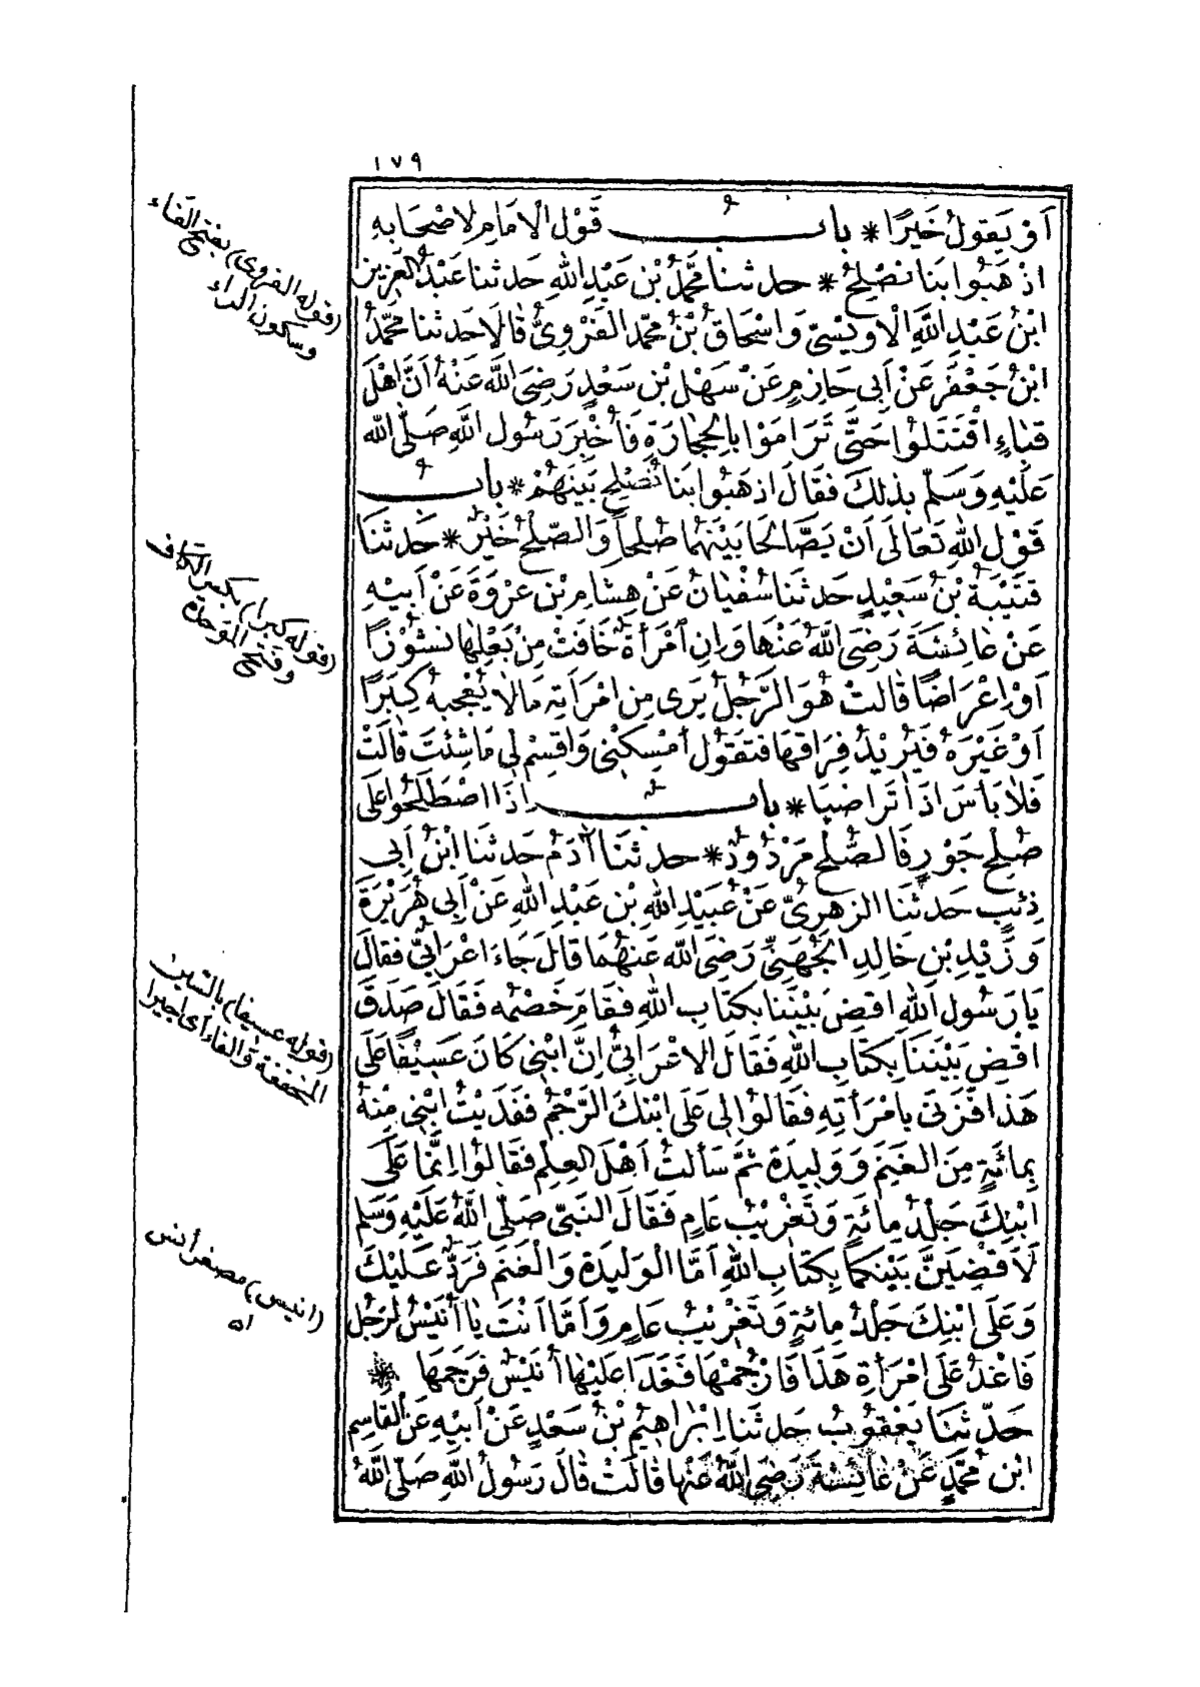 ١٧٩
اَوْ يَقولُ خَيْرًا * بابُ قَوْلِ الْاِمَامِ لِاَصْحَابِهِ
اذْهَبُوا بنَا نُصْلِحُ * حدثنا مُحَمَّدُ بْن عَبْدِ اللهِ حَدثنا عَبْدُ العَزِيز
ابْنُ عَبْدِ اللَّهِ الْاُوَيْسِيّ وَاسْحَاقُ بْنُ مُحَمَّد الْفَرْوِيُّ قَالَا حَدثنا مُحَمَّدُ
ابْنُ جَعْفَر عَنْ اَبى حَازِمٍ عَنْ سَهْل بْنِ سَعْدٍ رَضِىَ اللَّه عَنْهُ اَنَّ اهْلَ
قبَاءٍ اقْتَتَلوُا حَتَّى تَرَامَوْا بالحِجَارَةِ فَأُخْبِرَ رَسُول اللَّهِ صَلّى الله
عَلَيْهِ وَسَلّم بذلِكَ فَقَالَ اذهَبُوا بنَا نُصْلِح بَيْنَهُمْ * بابُ
قَوْلِ اللهِ تَعَالَى اَنْ يَصَّالحَا بَيْنَهُمَا صُلْحاً وَالصُّلْحُ خَيْرٌ * حَدثنَا
قتَيْبَةُ بْنُ سَعِيْدٍ حَدثنا سُفْيَانُ عَنْ هِشَامِ بْنِ عُرْوَةَ عَنْ اَبِيْهِ
عَنْ عَائِشَةَ رَضِىَ اللَّهُ عَنْهَا وَاِنِ امْرَأَةٌ خَافَتْ مِنْ بَعْلِهَا نشُوْزًا
اَوْ اِعْرَاضًا قَالتْ هُوَ الرَّجُلُ يَرى مِن امْرَأَتِهِ مَا لَا يُعْجبهُ كِبَرًا
اَوْ غَيْرَهُ فَيُرِيْدُ فِرَاقهَا فَتقوُل اَمْسِكْنِى وَاقسِمْ لِى مَا شِئْتَ قَالَتْ
فَلَا بَاْسَ اذَا تَرَاضيَا * بابُ اِذَا اصْطَلَحُوا عَلَى
صُلْحِ جَوْرٍ فَالصُّلْح مَرْدُودٌ * حدثنَا آدَمُ حَدثنَا ابْنُ اَبى
ذِئبٍ حَدثنَا الزهْرِىُّ عَنْ عُبَيْدِ اللهِ بْنِ عَبْدِ اللهِ عَنْ اَبى هُرَيْرَةَ
وَزَيْدِ بْنِ خَالِدِ الْجُهَنِىِّ رَضِىَ اللَّه عَنْهُمَا قالَ جَاءَ اعْرَابىٌّ فَقالَ
يَا رَسُولَ اللهِ اقضِ بَيْنَنا بكِتَابِ اللهِ فقَامَ خَصْمُه فَقَالَ صَدَقَ
اقْضِ بَيْنَنَا بِكِتَابِ اللهِ فَقَالَ الاعْرَابىُّ اِنَّ ابْنِى كَانَ عَسِيْفًا عَلَى
هَذَا فَزَنَى بامْرَأتِهِ فَقَالوُا لِى عَلَى ابْنكَ الرَّجْمُ فَفَدَيْتُ ابْنِى مِنْهُ
بِمائةٍ مِنَ الغَنَمِ وَوَلِيدَة ثمَّ سَألتُ اَهْلَ العِلمِ فَقَالوُا اِنَّمَا عَلَى
ابْنِكَ جَلْدُ مِائَةٍ وَتَغْرِيْبُ عَامٍ فَقَالَ النَبىّ صَلَّى اللَّهُ عَلَيْهِ وَسَلم
لَاَقضِيَنَّ بَيْنكمَا بِكِتَابِ اللهِ اَمَّا الْوَلِيدَة وَالْغَنَم فَرَدٌّ عَلَيْكَ
وَعَلَى ابْنِكَ جَلْدُ مِائةٍ وَتَغْرِيْبُ عَامٍ وَاَمَّا اَنْتَ يَا أُنَيْسُ لِرَجُل
فَاغْدُ عَلَى امْرَأَةِ هَذَا فَارْجُمْهَا فَغَدَا عَلَيْهَا أُنَيْسٌ فَرَجَمَهَا *
حَدّثنَا يَعْقوُبُ حَدثنا اِبْرَاهِيْم بْنُ سَعْدٍ عَنْ اَبيْهِ عَنِ القاسِمِ
ابْن مُحَمَّدٍ عَنْ عَائِشَةَ رَضِىَ اللَّهُ عَنْهَا قَالَتْ قَالَ رَسُولُ اللَّهِ صَلّى اللَّهُ
(قوله الفروى) بفتح الفاء
وسكون الراء
(قوله كبرا) بكسر الكاف
وفتح الموحدة
(قوله عسيفا) بالسين
المخففة والفاء أى اجيرا
(انيس) مصغر أنس
اه